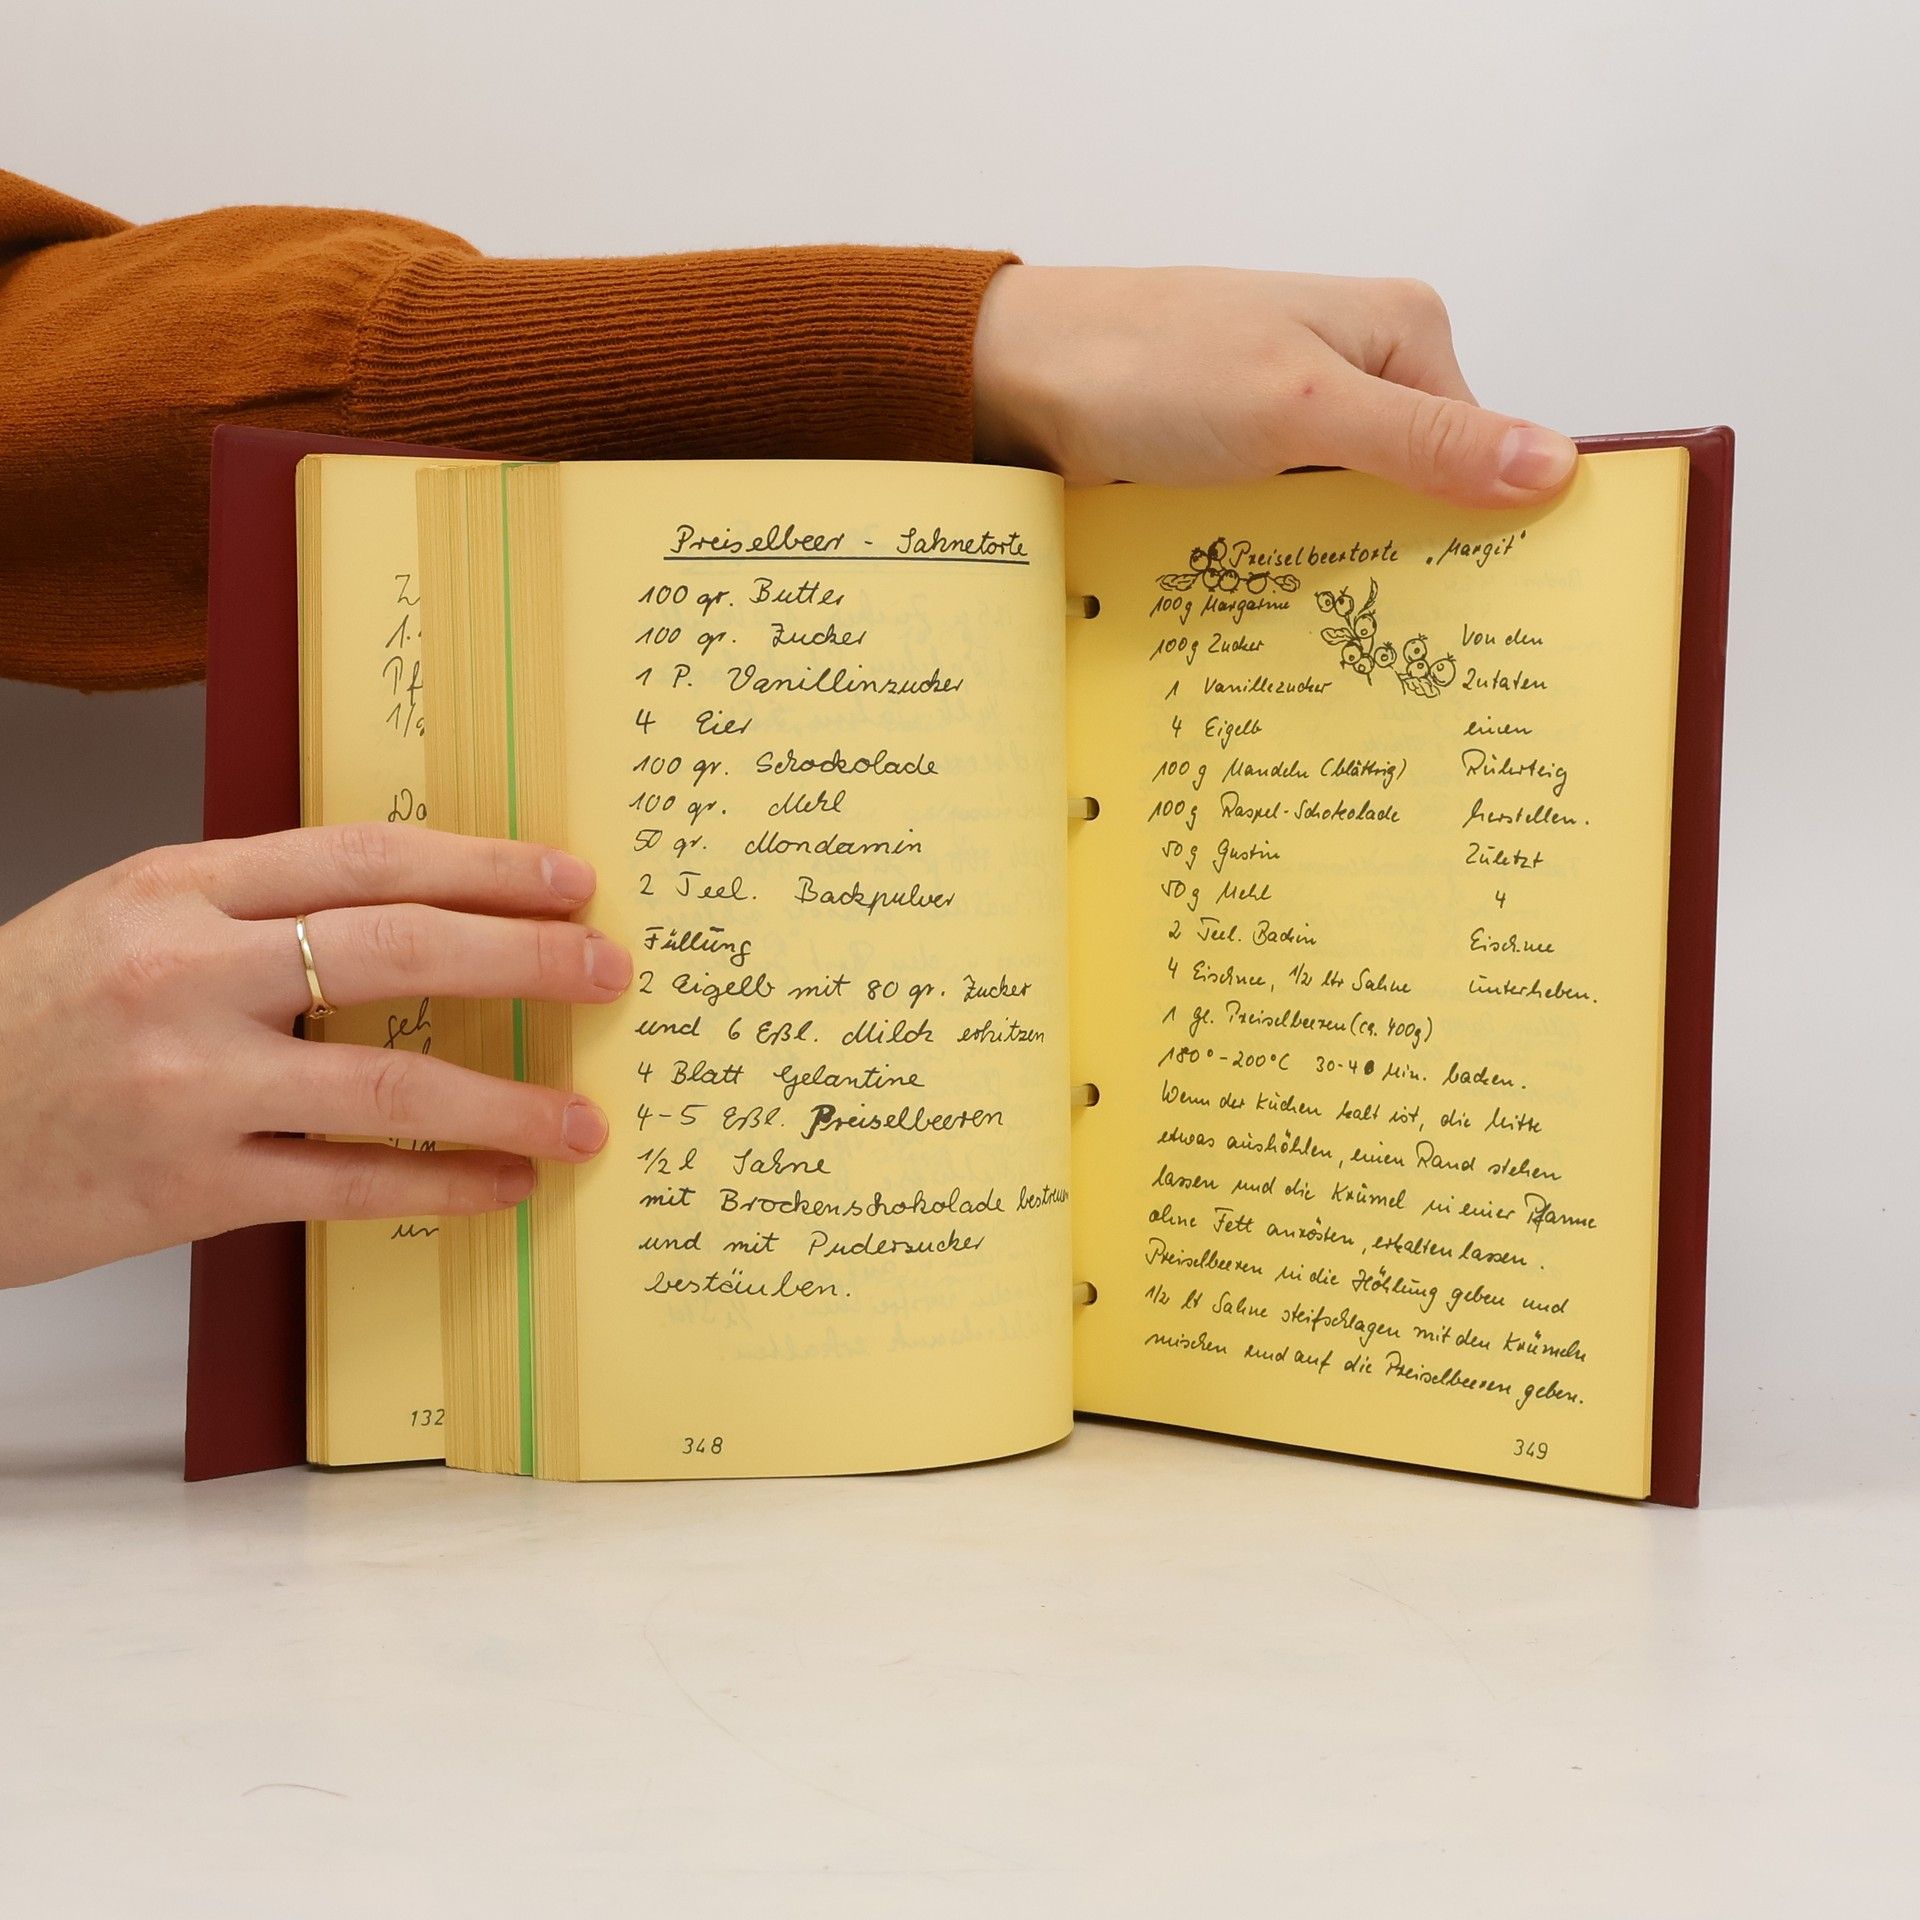 Z
1.
Pf
1/2
Do
geh
in
un
132
Preiselbeer - Sahnetorte
100 gr. Butter
100 gr. Zucker
1 P. Vanillinzucker
4 Eier
100 gr. Schockolade
100 gr. Mehl
50 gr. Mondamin
2 Teel. Backpulver
Füllung
2 Eigelb mit 80 gr. Zucker
und 6 Eßl. Milch erhitzen
4 Blatt Gelantine
4-5 Eßl. Preiselbeeren
1/2 l Sahne
mit Brockenschokolade bestreuen
und mit Puderzucker
bestäuben.
348
Preiselbeertorte "Margit"
100g Margarine
100g Zucker
1 Vanillezucker
4 Eigelb
100 g Mandeln (blättrig)
100 g Raspel-Schokolade
50 g Gustin
50 g Mehl
2 Teel. Backin
4 Eischnee, 1/2 ltr Sahne
1 gl. Preiselbeeren (ca. 400g)
Von den
Zutaten
einen
Rührteig
herstellen.
Zuletzt
4
Eischnee
unterheben.
180°-200°C 30-40 Min. backen.
Wenn der Kuchen kalt ist, die Mitte
etwas aushöhlen, einen Rand stehen
lassen und die Krümel in einer Pfanne
ohne Fett anrösten, erkalten lassen.
Preiselbeeren in die Höhlung geben und
1/2 lt Sahne steifschlagen mit den Krümeln
mischen und auf die Preiselbeeren geben.
349